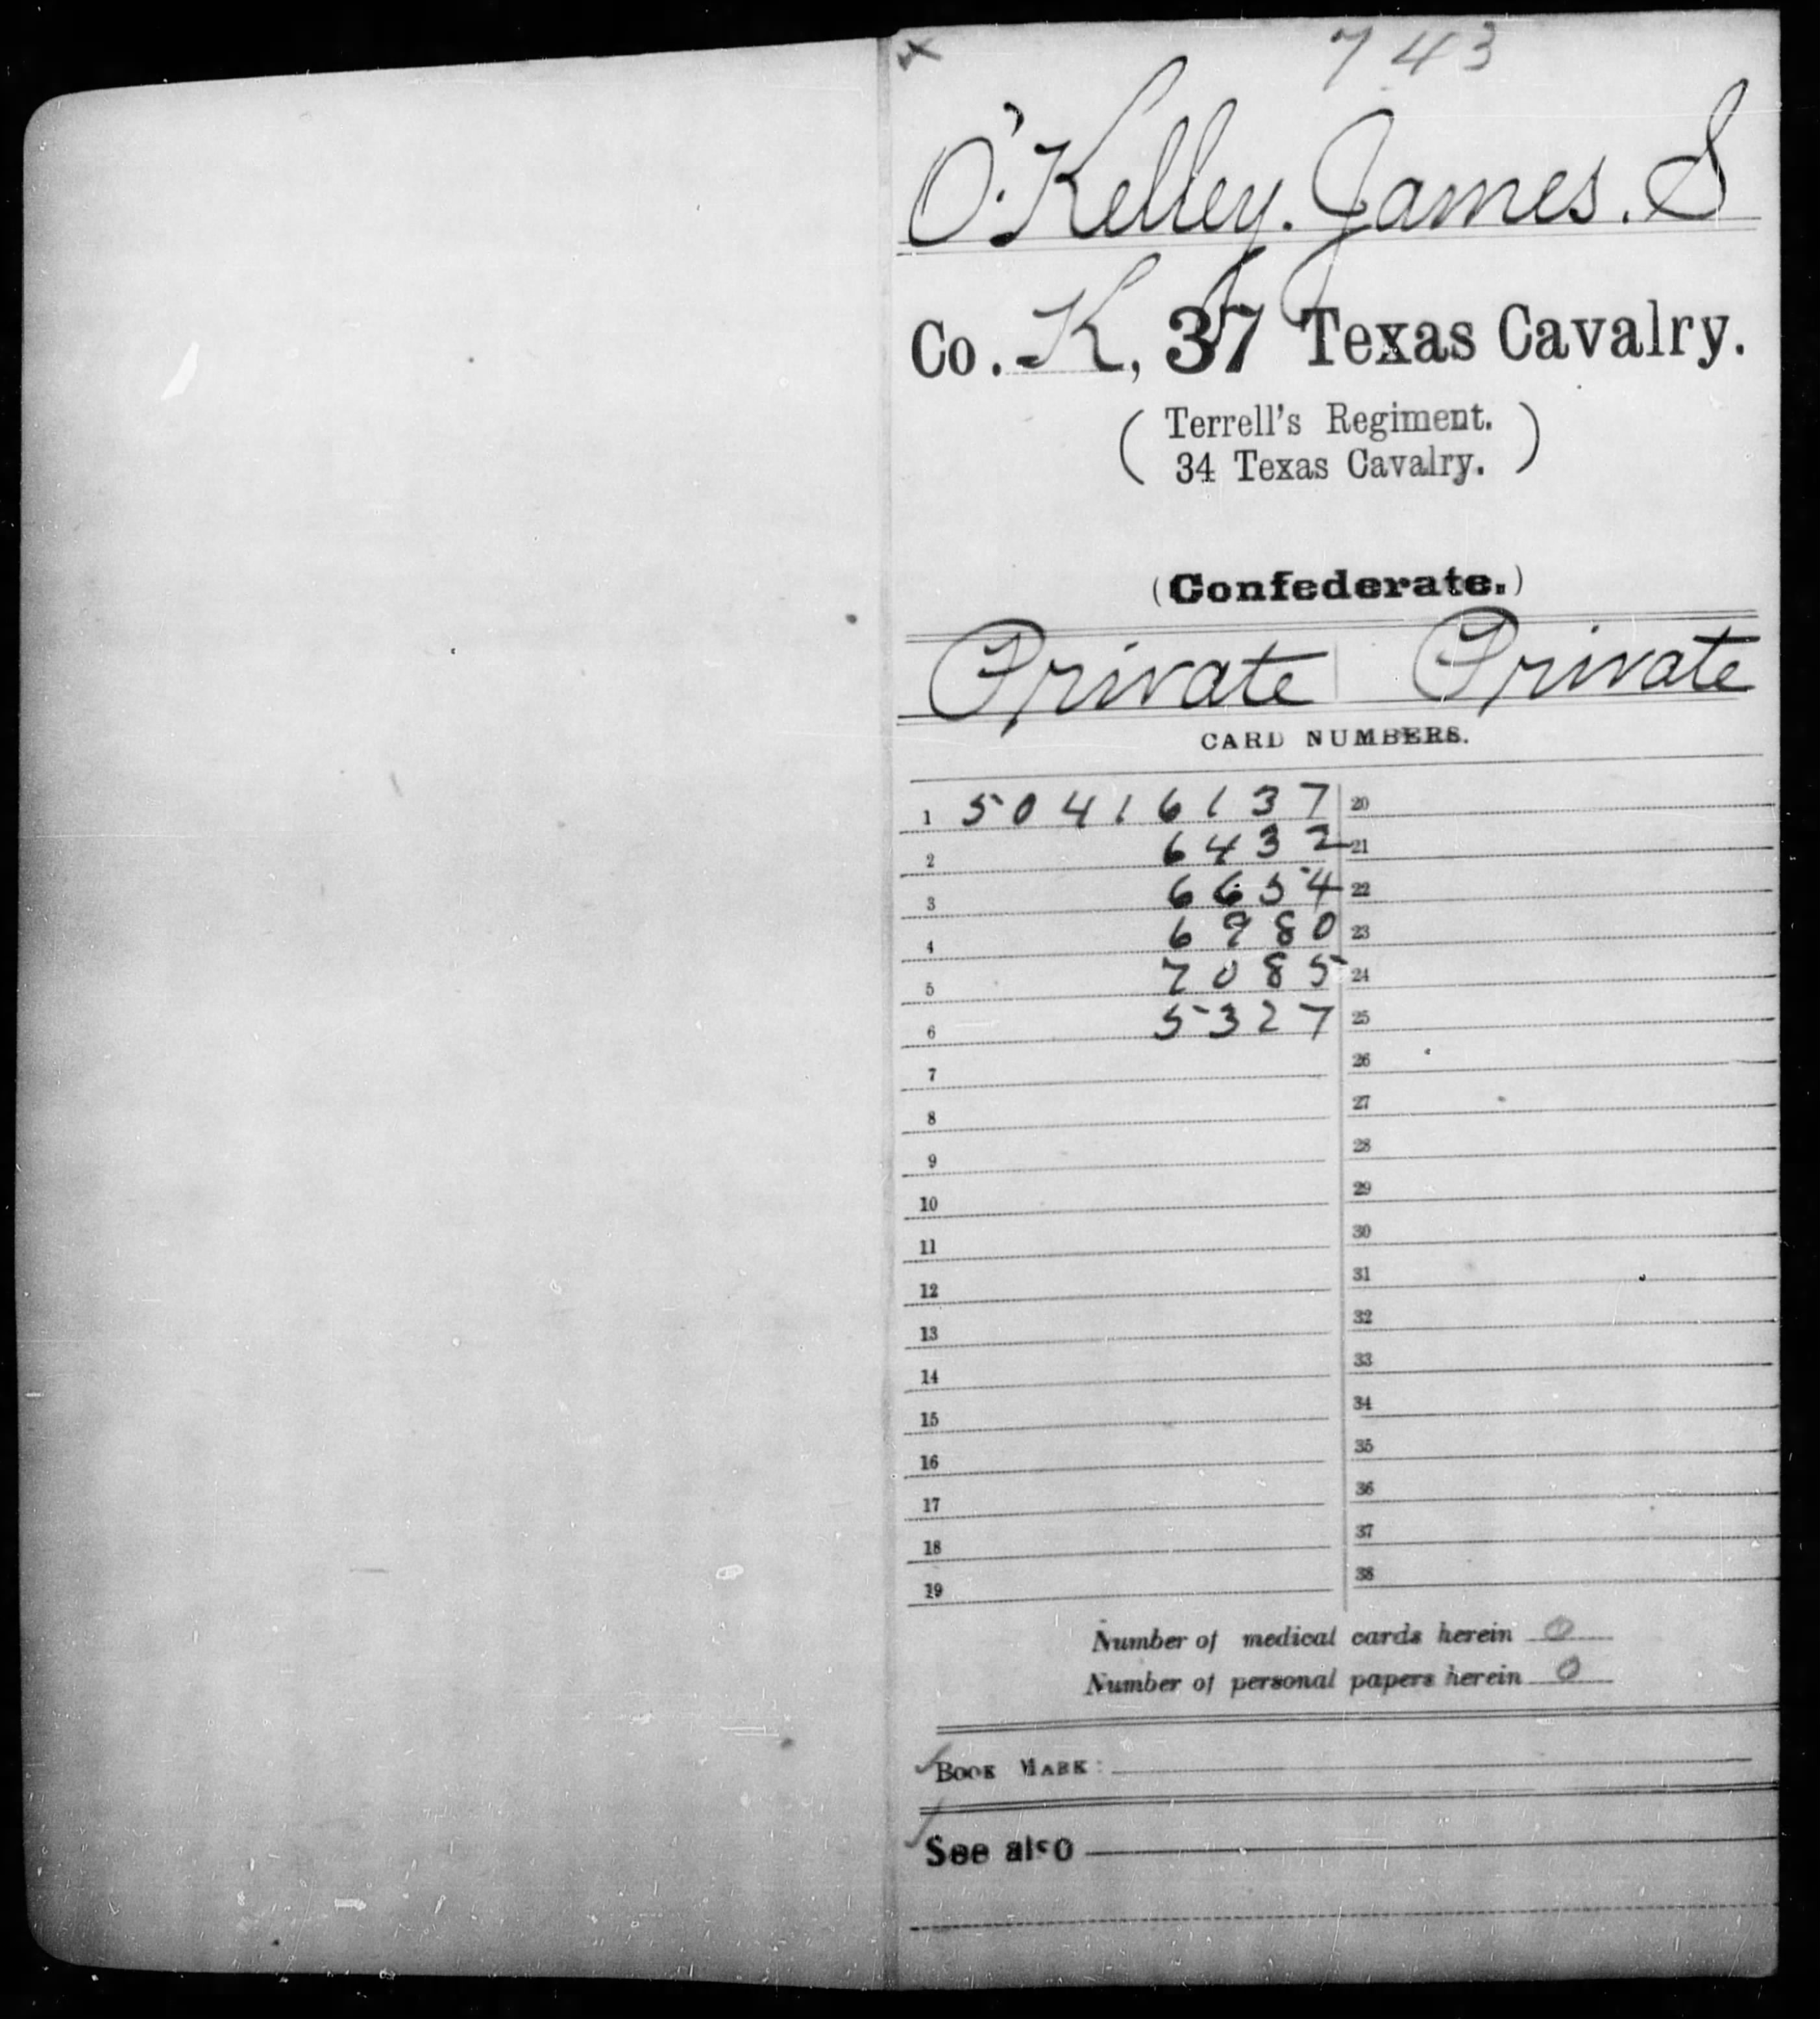 x 743
O'Kelley. James. S
Co. K, 37 Texas Cavalry.
( Terrell's Regiment.
34 Texas Cavalry. )
(Confederate.)
Private Private
CARD NUMBERS.
1 50416137 20
2 6432 21
3 6654 22
4 6980 23
5 7085 24
6 5327 25
7 26
8 27
9 28
10 29
11 30
12 31
13 32
14 33
15 34
16 35
17 36
18 37
19 38
Number of medical cards herein 0
Number of personal papers herein 0
BOOK MARK:
See also